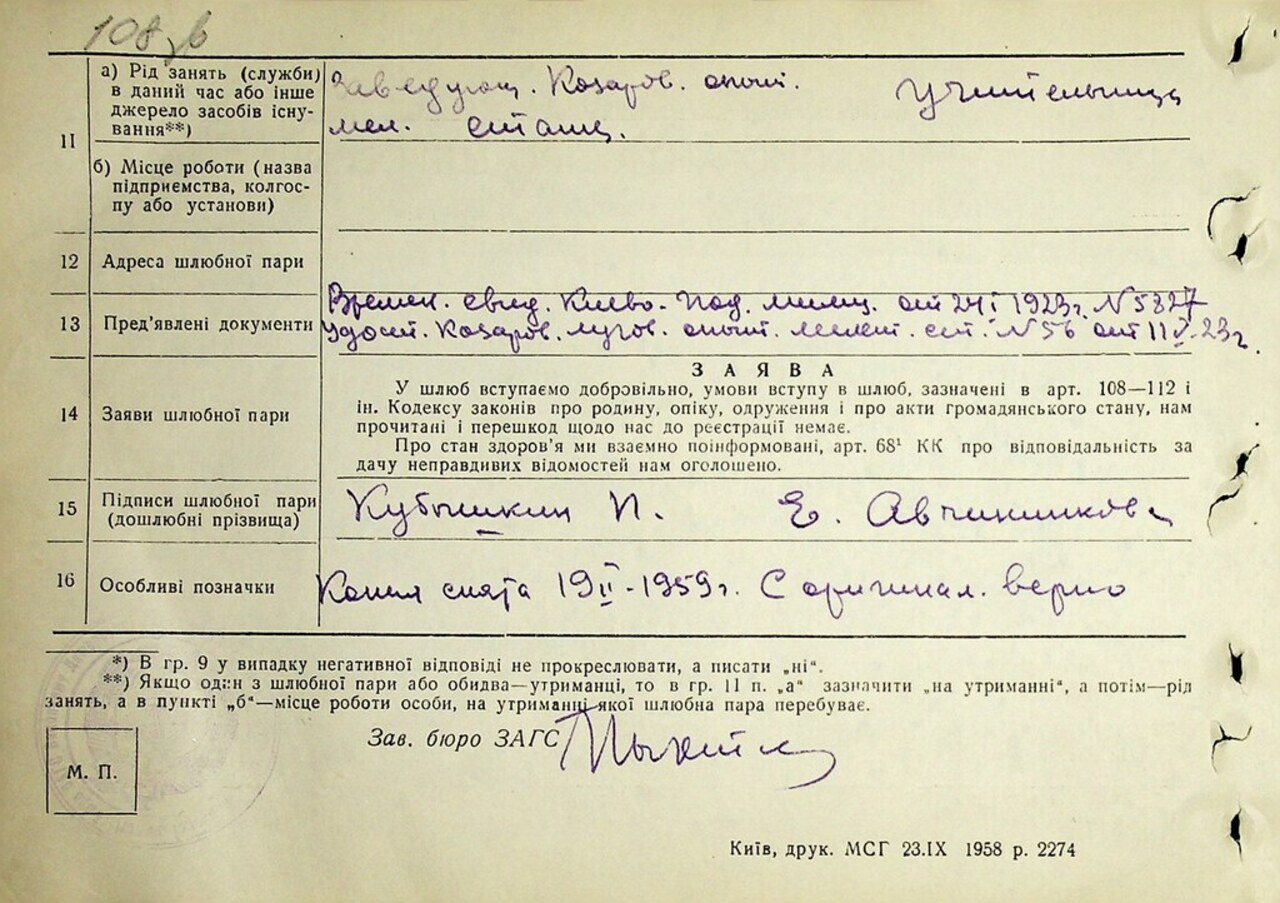 108 зв
а) Рід занять (служби) в даний час або інше джерело засобів існування**)
Заведующ. Козаров. опыт. мел. станц.
Учительница
11
б) Місце роботи (назва підприємства, колгоспу або установи)
12 Адреса шлюбної пари
13 Пред’явлені документи
Времен. свид. Киево-Под. милиц. от 24 I 1923г. N 5327
Удост. Козаров. лугов. опыт. мелиот. ст. N 56 от 11 V-23г.
14 Заяви шлюбної пари
ЗАЯВА
У шлюб вступаємо добровільно, умови вступу в шлюб, зазначені в арт. 108—112 і
ін. Кодексу законів про родину, опіку, одруження і про акти громадянського стану, нам
прочитані і перешкод щодо нас до реєстрації немає.
Про стан здоров’я ми взаємно поінформовані, арт. 68¹ КК про відповідальність за
дачу неправдивих відомостей нам оголошено.
15 Підписи шлюбної пари
(дошлюбні прізвища)
Кубышкин П. Е. Авчинникова
16 Особливі позначки
Копия снята 19 II-1959г. С оригинал. верно
*) В гр. 9 у випадку негативної відповіді не прокреслювати, а писати „ні“.
**) Якщо один з шлюбної пари або обидва—утриманці, то в гр. 11 п. „а“ зазначити „на утриманні“, а потім—рід
занять, а в пункті „б“—місце роботи особи, на утриманні якої шлюбна пара перебуває.
Зав. бюро ЗАГС
М. П.
Київ, друк. МСГ 23.IX 1958 р. 2274